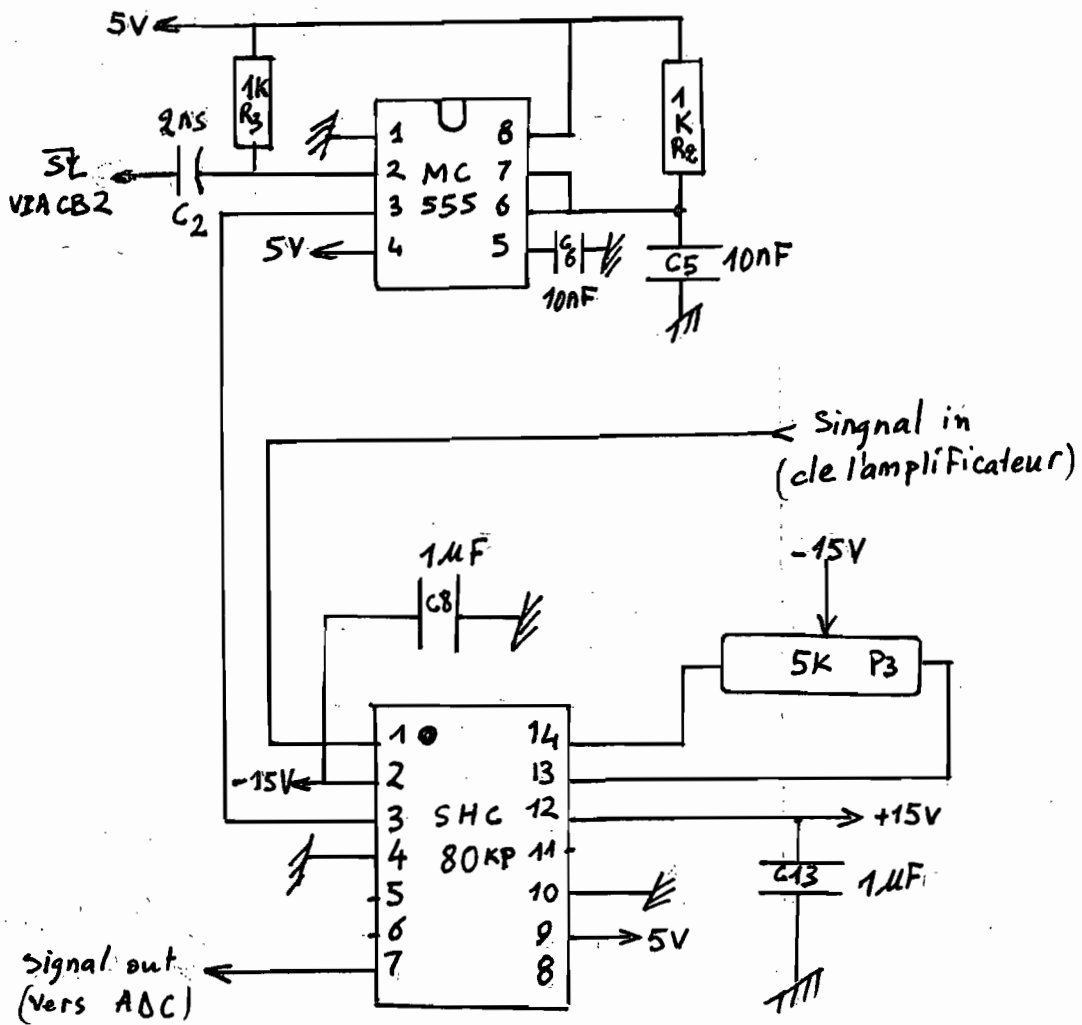 5V
1K
R3
1
K
R2
2ns
SL
VIA CB2
C2
1
2
3
4
MC
555
8
7
6
5
5V
C6
10nF
C5
10nF
Singnal in
(de l'amplificateur)
1µF
C8
-15V
5K P3
-15V
1
2
3
4
5
6
7
SHC
80KP
14
13
12
11
10
9
8
+15V
C13
1µF
5V
signal out
(vers ADC)